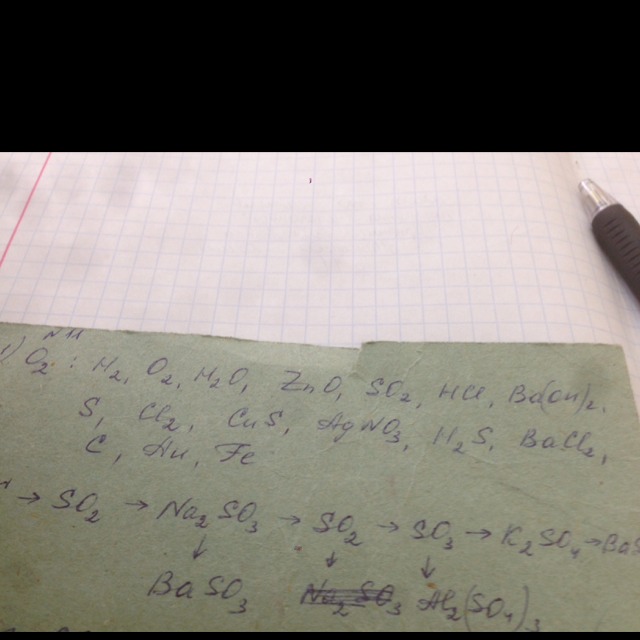 O₂: H₂, O₂, H₂O, ZnO, SO₂, HCl, Ba(OH)₂,
S, Cl₂, CuS, AgNO₃, H₂S, BaCl₂,
C, Au, Fe
→ SO₂ → Na₂SO₃ → SO₂ → SO₃ → K₂SO₄ → BaS
↓ ↓ ↓
BaSO₃ Al₂(SO₄)₃